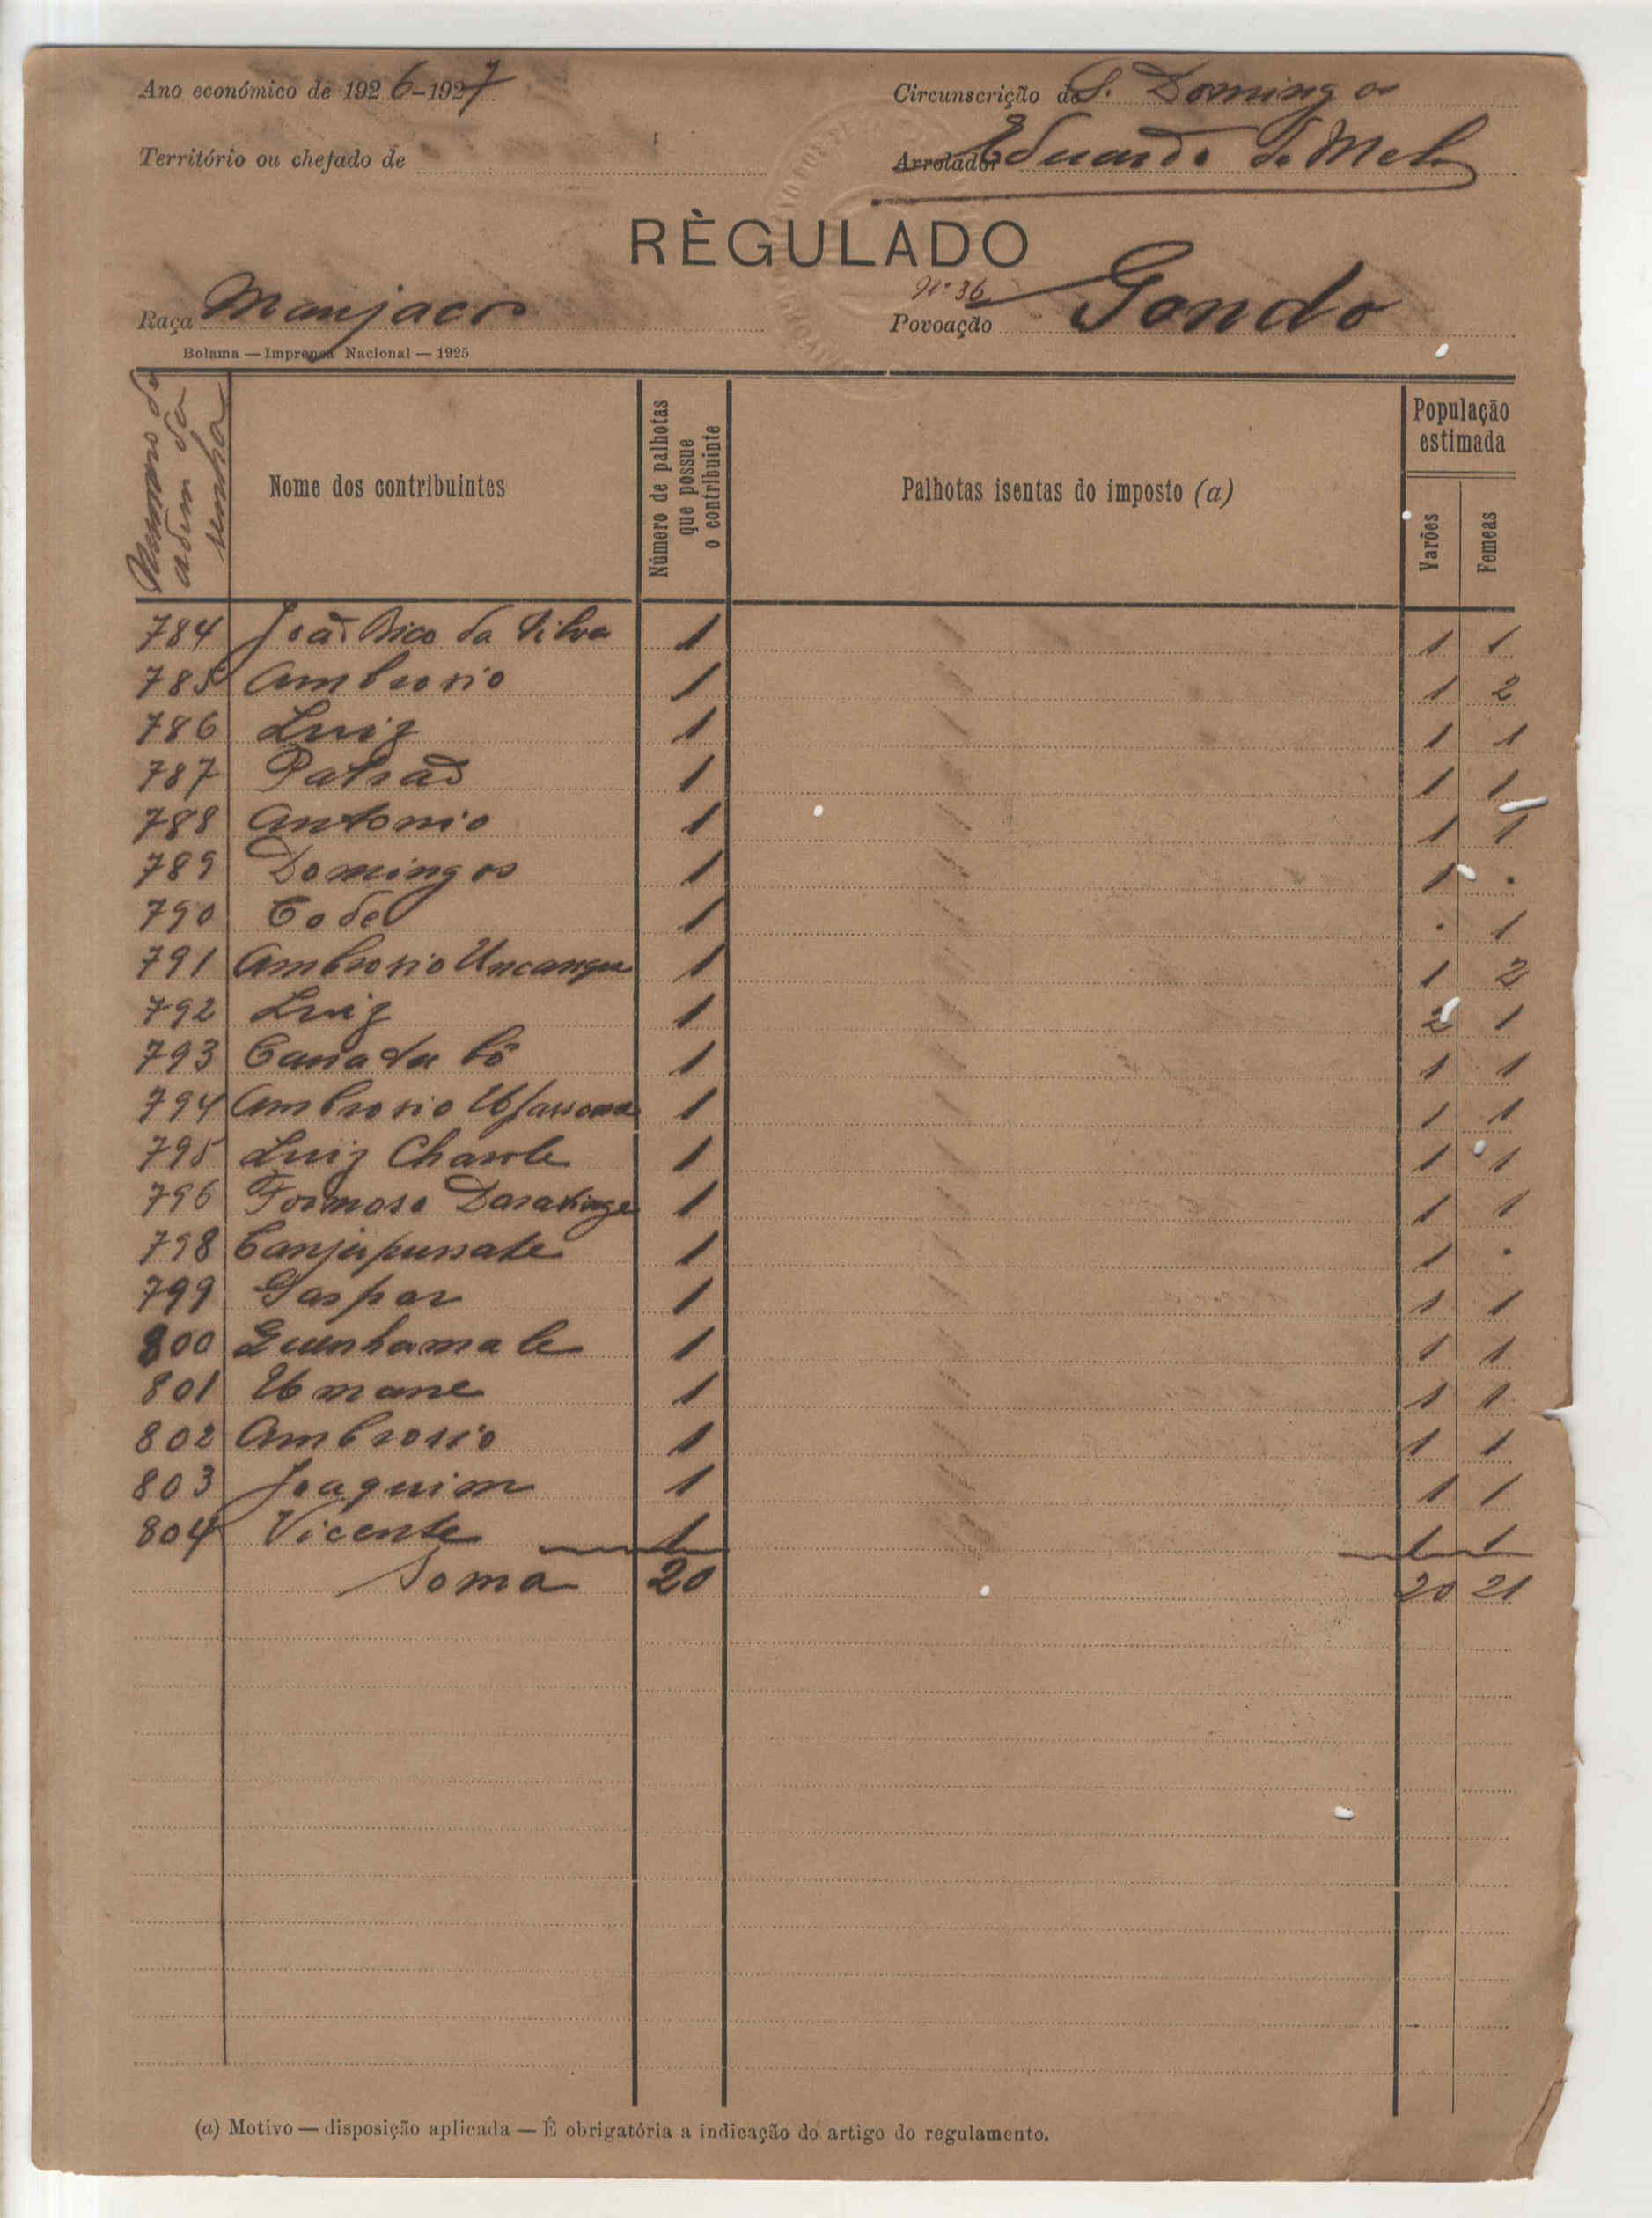 Ano económico de 1926-1927
Circunscrição de S. Domingos
Território ou chefado de
Arrolador Eduardo de Melo
RÈGULADO
Nº 36
Raça Manjacos
Povoação Gondo
Bolama — Imprensa Nacional — 1925
Numero de ordem da senha
Nome dos contribuintes
Número de palhotas que possue o contribuinte
Palhotas isentas do imposto (a)
População estimada
Varões
Femeas
784 João Bico da Silva 1 1 1
785 Ambrosio 1 1 2
786 Luiz 1 1 1
787 Patrão 1 1 1
788 Antonio 1 1 1
789 Domingos 1 1 .
790 Code 1 . 1
791 Ambrosio Uncangu 1 1 2
792 Luiz 1 2 1
793 Canadu 1 1 1
794 Ambrosio 1 1 1
795 Luiz Charle 1 1 1
796 Formoso 1 1 1
798 Canjupussate 1 1 .
799 Gaspar 1 1 1
800 Guenhamale 1 1 1
801 Umane 1 1 1
802 Ambrosio 1 1 1
803 Joaquim 1 1 1
804 Vicente 1 1 1
Soma 20 20 21
(a) Motivo — disposição aplicada — É obrigatória a indicação do artigo do regulamento.